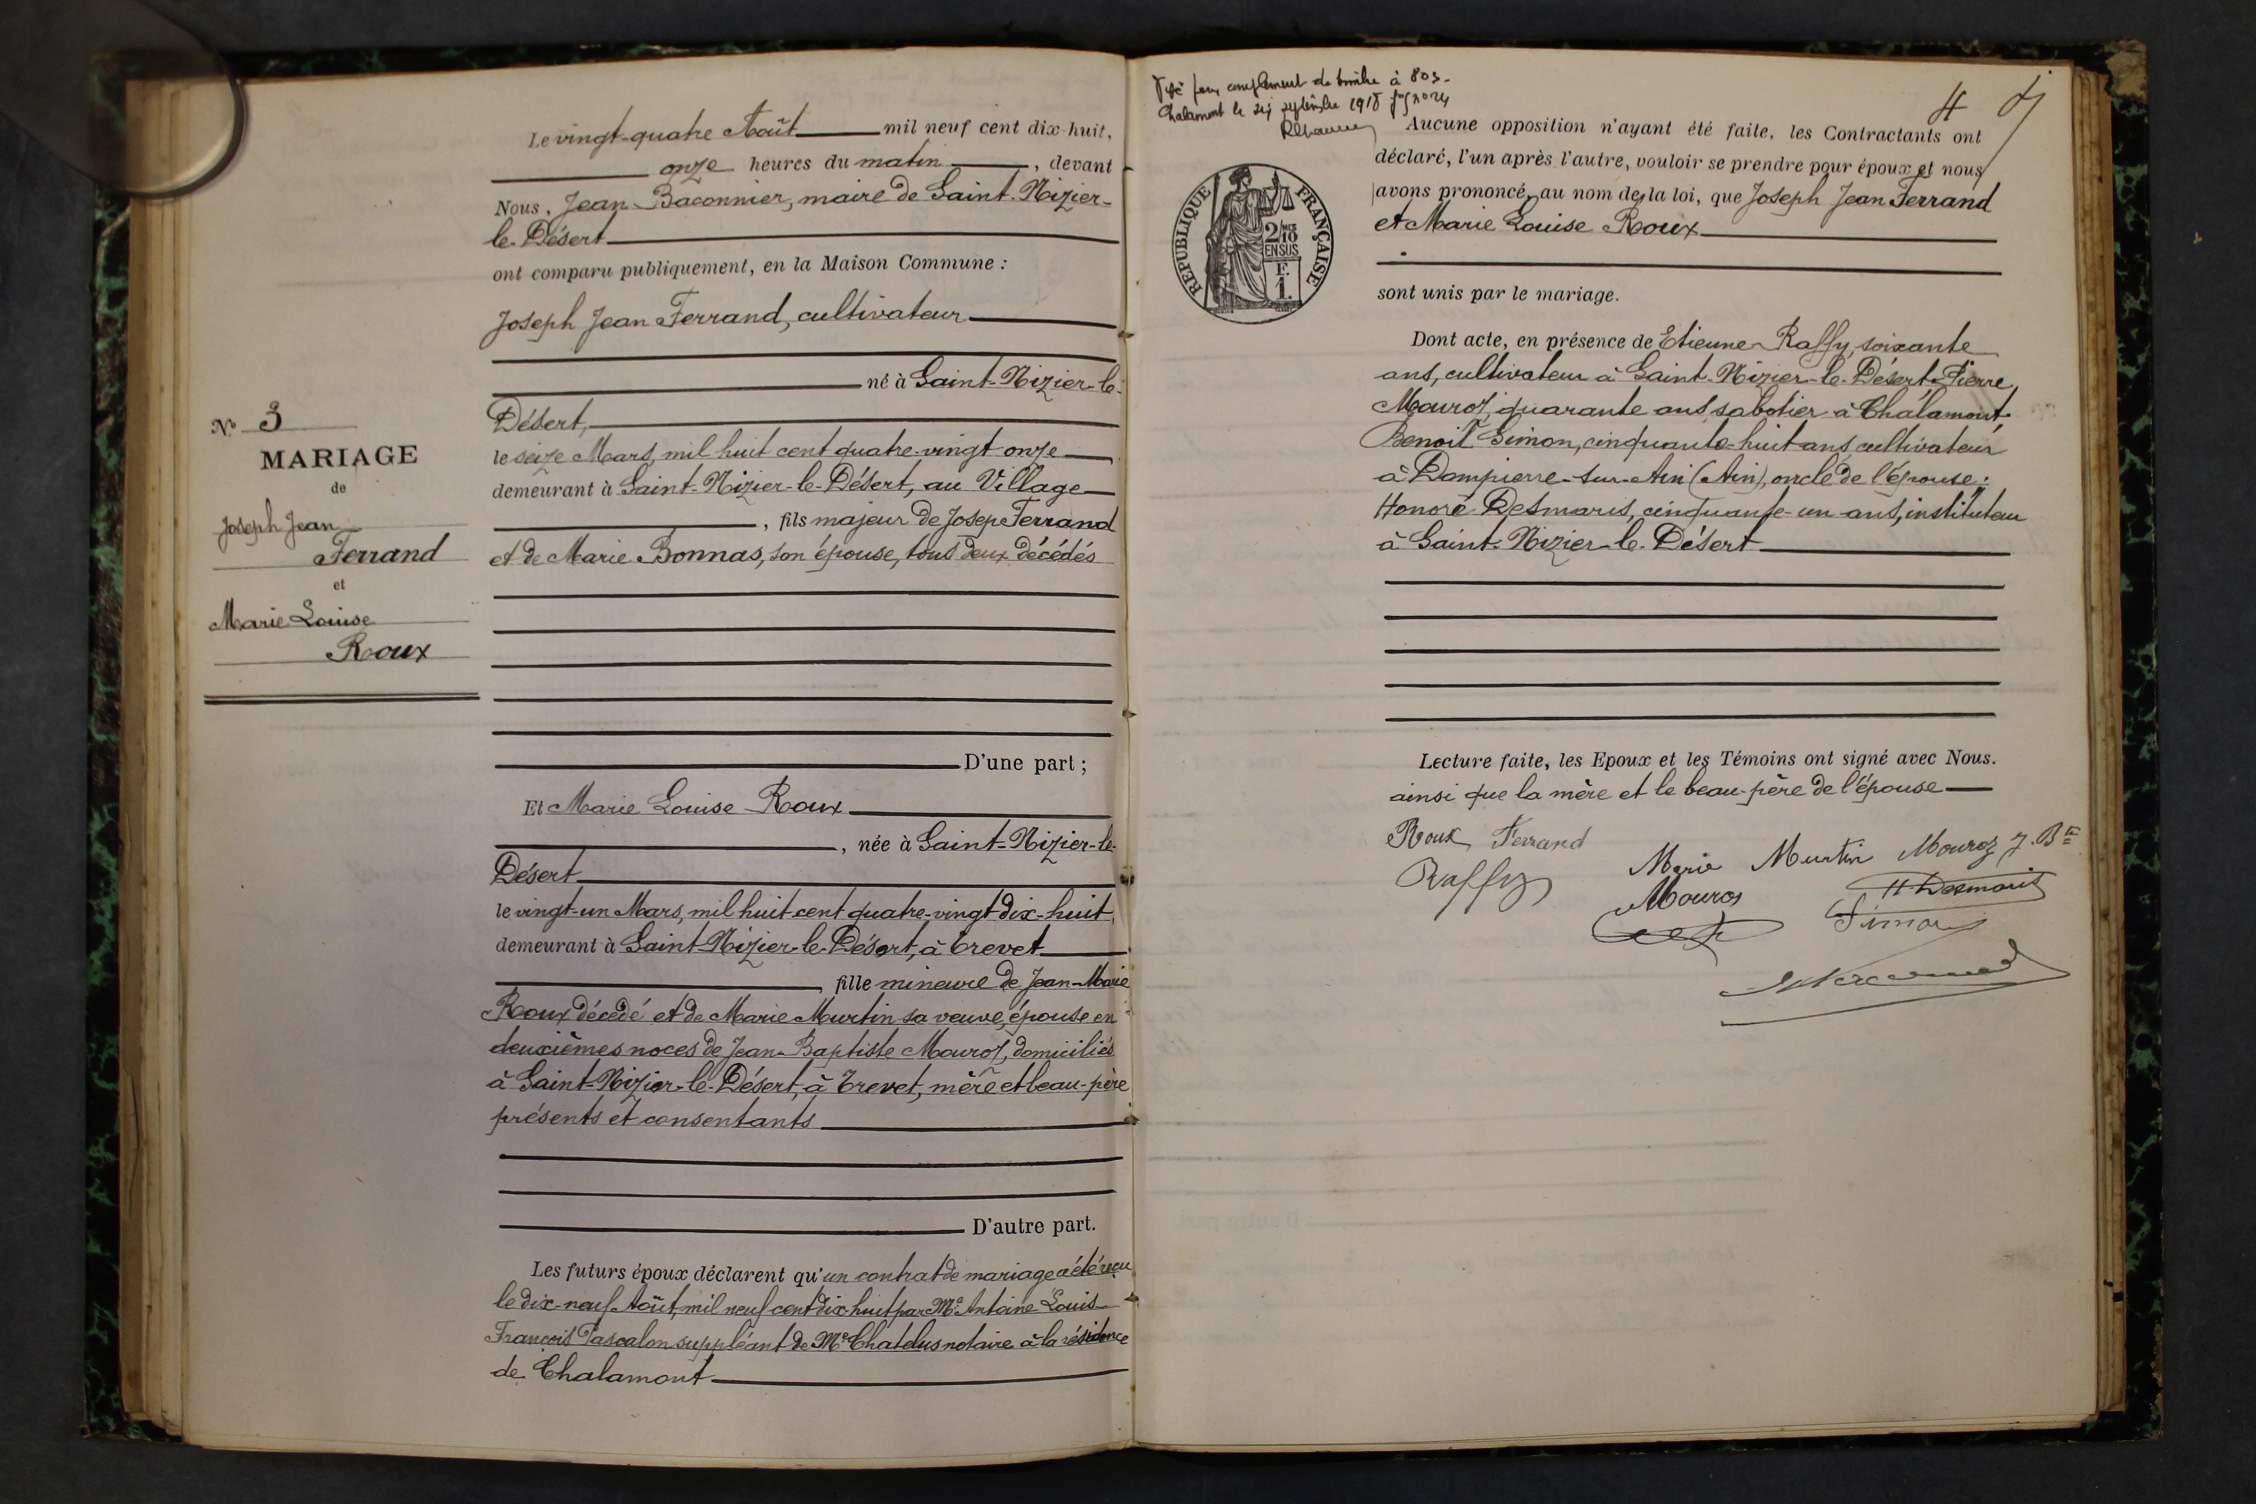 Le vingt-quatre Août mil neuf cent dix-huit,
onze heures du matin, devant
Nous, Jean Baconnier, maire de Saint-Nizier-
le-Désert
ont comparu publiquement, en la Maison Commune :
Joseph Jean Ferrand, cultivateur
né à Saint-Nizier-le-
Désert,
le seize Mars, mil huit cent quatre-vingt-onze
demeurant à Saint-Nizier-le-Désert, au Village
, fils majeur de Josep Ferrand
et de Marie Bonnas, son épouse, tous deux décédés
D'une part ;
Et Marie Louise Roux
, née à Saint-Nizier-le-
Désert
le vingt-un Mars, mil huit cent quatre-vingt dix-huit,
demeurant à Saint-Nizier-le-Désert, à Trevet
, fille mineure de Jean-Marie
Roux décédé et de Marie Murtin sa veuve, épouse en
deuxièmes noces de Jean-Baptiste Mouroz, domiciliés
à Saint-Nizier-le-Désert, à Trevet, mère et beau-père
présents et consentants
D'autre part.
Les futurs époux déclarent qu'un contrat de mariage a été reçu
le dix-neuf Août, mil neuf cent dix-huit par Me Antoine Louis
François Pascalon suppléant de Me Chatelus notaire à la résidence
de Chalamont
No 3
MARIAGE
de
Joseph Jean
Ferrand
et
Marie Louise
Roux
pour complément de timbre à
Chalamont le septembre 1918
4
Aucune opposition n'ayant été faite, les Contractants ont
déclaré, l'un après l'autre, vouloir se prendre pour époux et nous
avons prononcé, au nom de la loi, que Joseph Jean Ferrand
et Marie Louise Roux
sont unis par le mariage.
RÉPUBLIQUE FRANÇAISE
2/10
EN SUS
F.
1.
Dont acte, en présence de Etienne Raffy, soixante
ans, cultivateur à Saint-Nizier-le-Désert, Pierre
Mouroz, quarante ans, sabotier à Châlamont,
Benoit Simon, cinquante-huit ans, cultivateur
à Dampierre-sur-Ain (Ain), oncle de l'épouse ;
Honoré Desmaris, cinquante-un ans, instituteur
à Saint-Nizier-le-Désert
Lecture faite, les Epoux et les Témoins ont signé avec Nous.
ainsi que la mère et le beau-père de l'épouse
Roux Ferrand
Marie Murtin Mouroz J. Bte
Raffy
Mouroz
H Desmaris
Simon